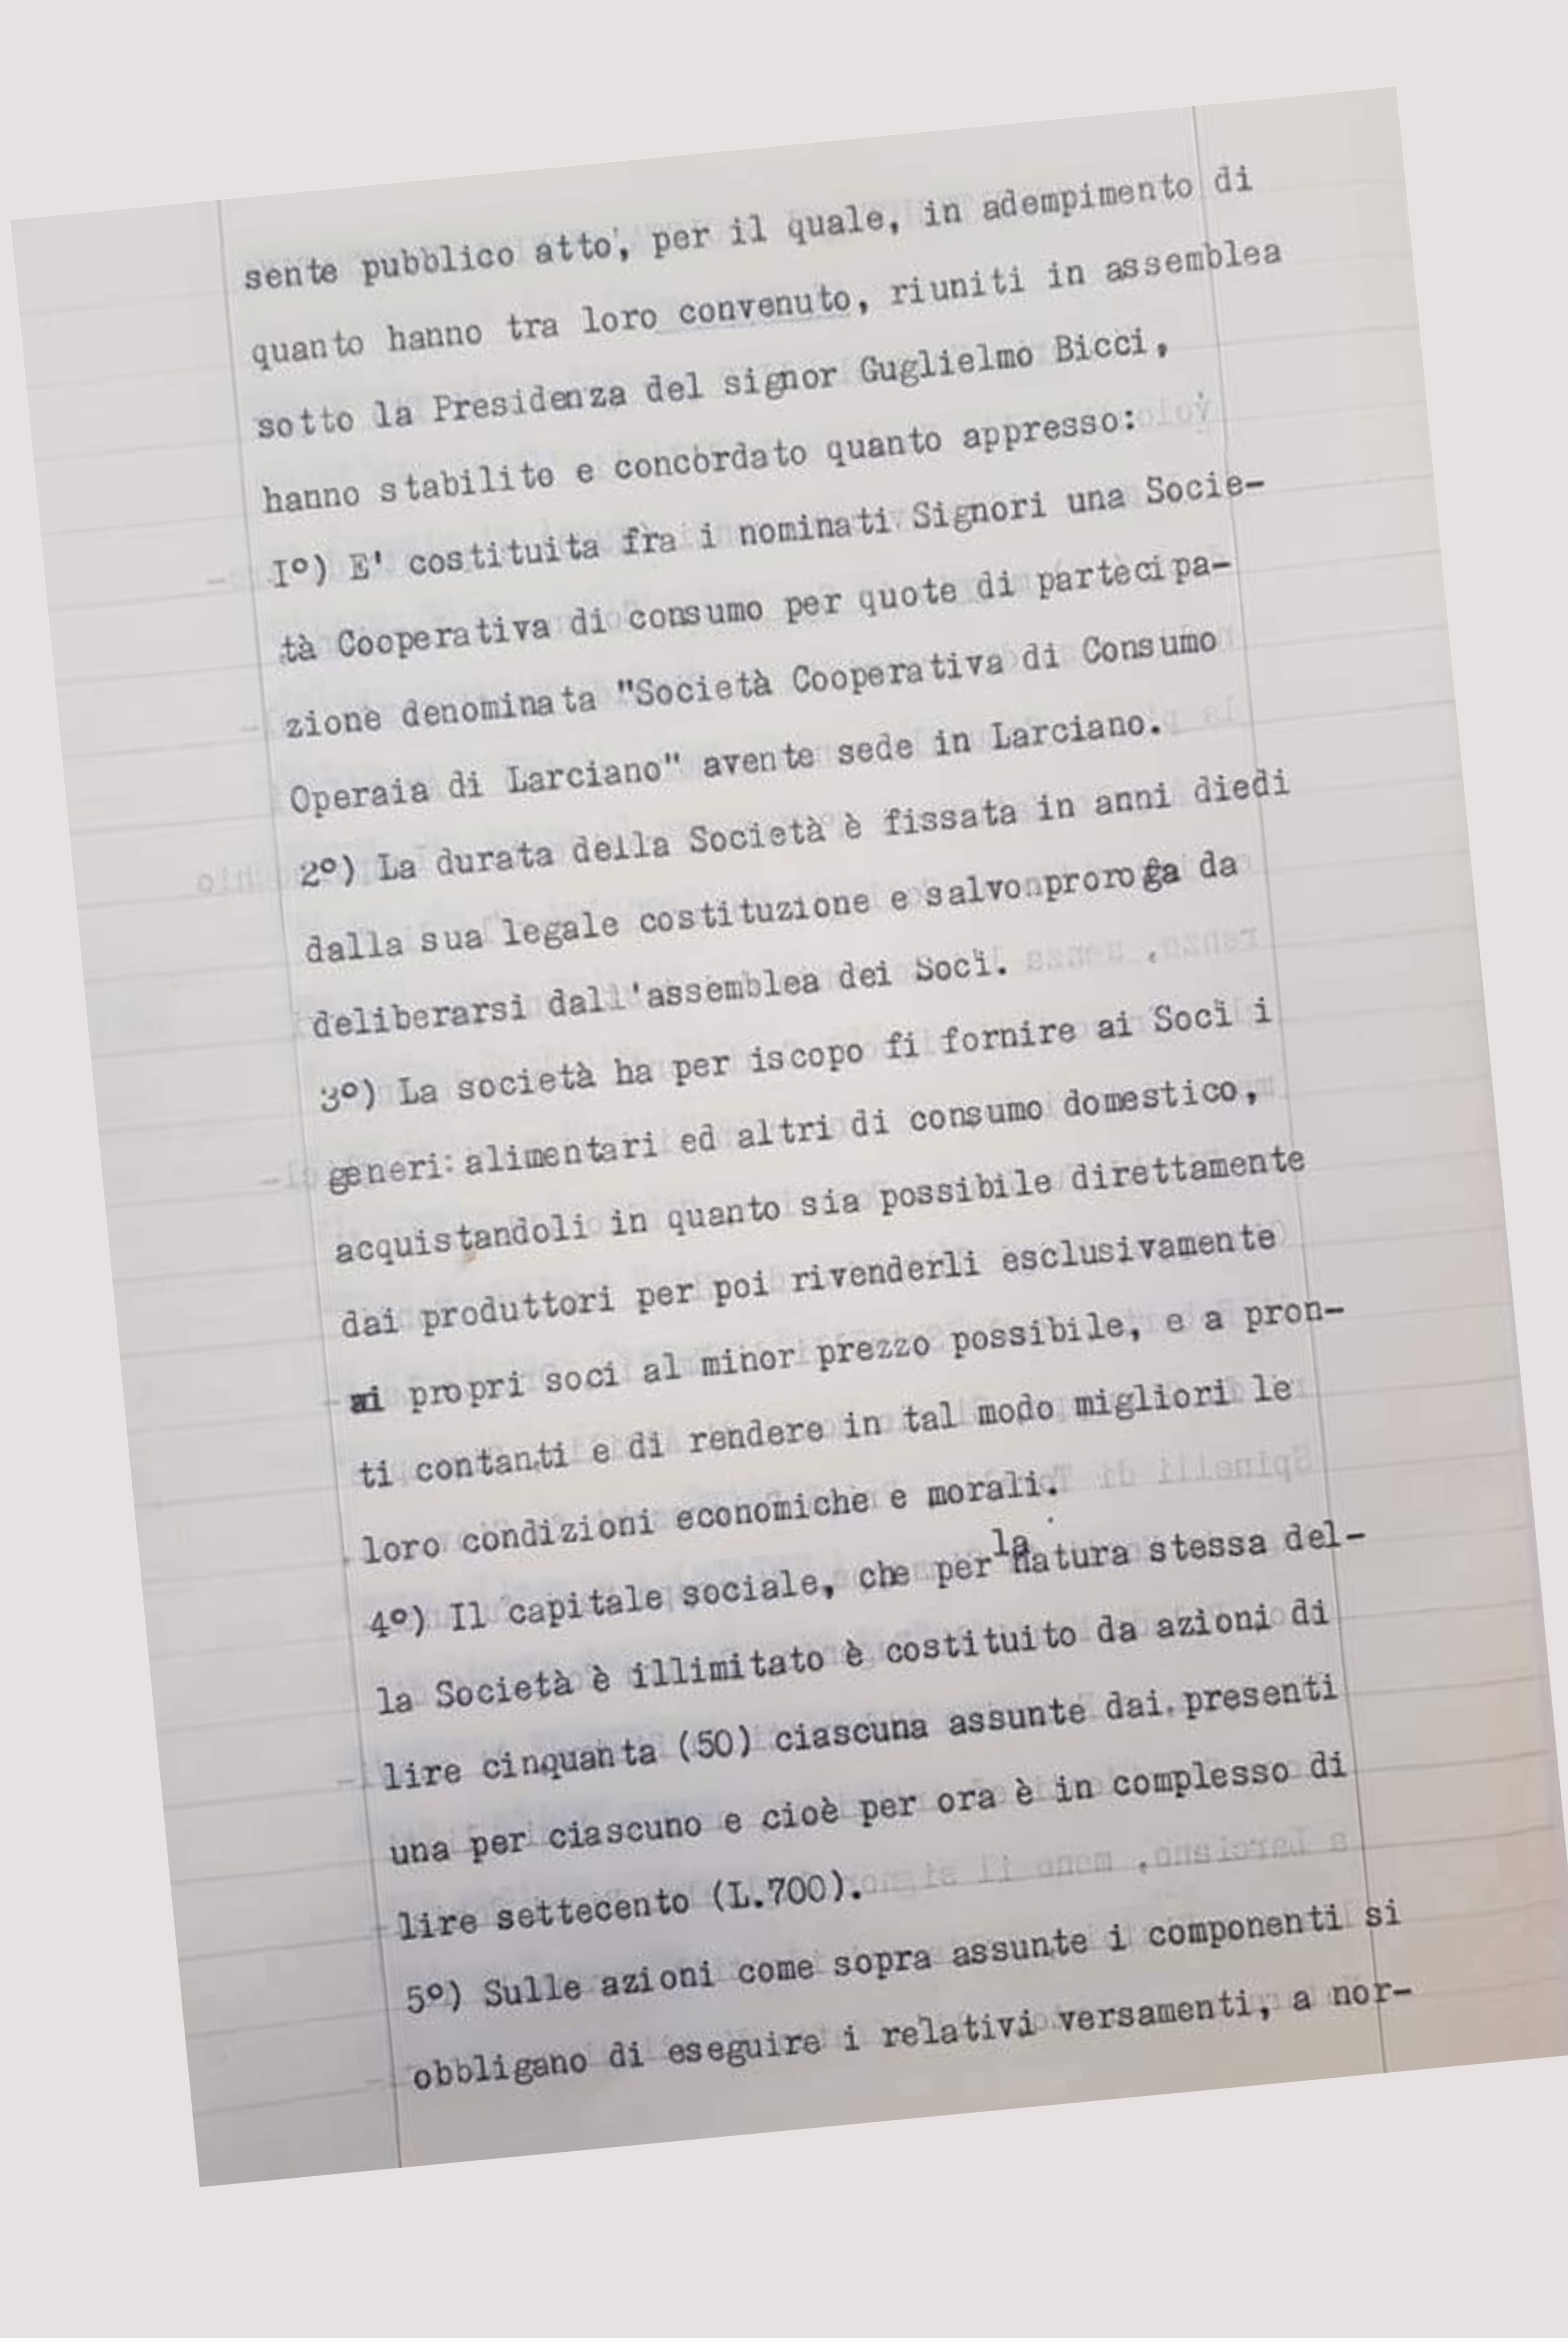 sente pubblico atto, per il quale, in adempimento di
quanto hanno tra loro convenuto, riuniti in assemblea
sotto la Presidenza del signor Guglielmo Bicci,
hanno stabilito e concordato quanto appresso:
I°) E' costituita fra i nominati Signori una Socie-
tà Cooperativa di consumo per quote di partecipa-
zione denominata "Società Cooperativa di Consumo
Operaia di Larciano" avente sede in Larciano.
2°) La durata della Società è fissata in anni diedi
dalla sua legale costituzione e salvo proroga da
deliberarsi dall'assemblea dei Soci.
3°) La società ha per iscopo fi fornire ai Soci i
generi alimentari ed altri di consumo domestico,
acquistandoli in quanto sia possibile direttamente
dai produttori per poi rivenderli esclusivamente
ai propri soci al minor prezzo possibile, e a pron-
ti contanti e di rendere in tal modo migliori le
loro condizioni economiche e morali.
4°) Il capitale sociale, che per la natura stessa del-
la Società è illimitato è costituito da azioni di
lire cinquanta (50) ciascuna assunte dai presenti
una per ciascuno e cioè per ora è in complesso di
lire settecento (L.700).
5°) Sulle azioni come sopra assunte i componenti si
obbligano di eseguire i relativi versamenti, a nor-